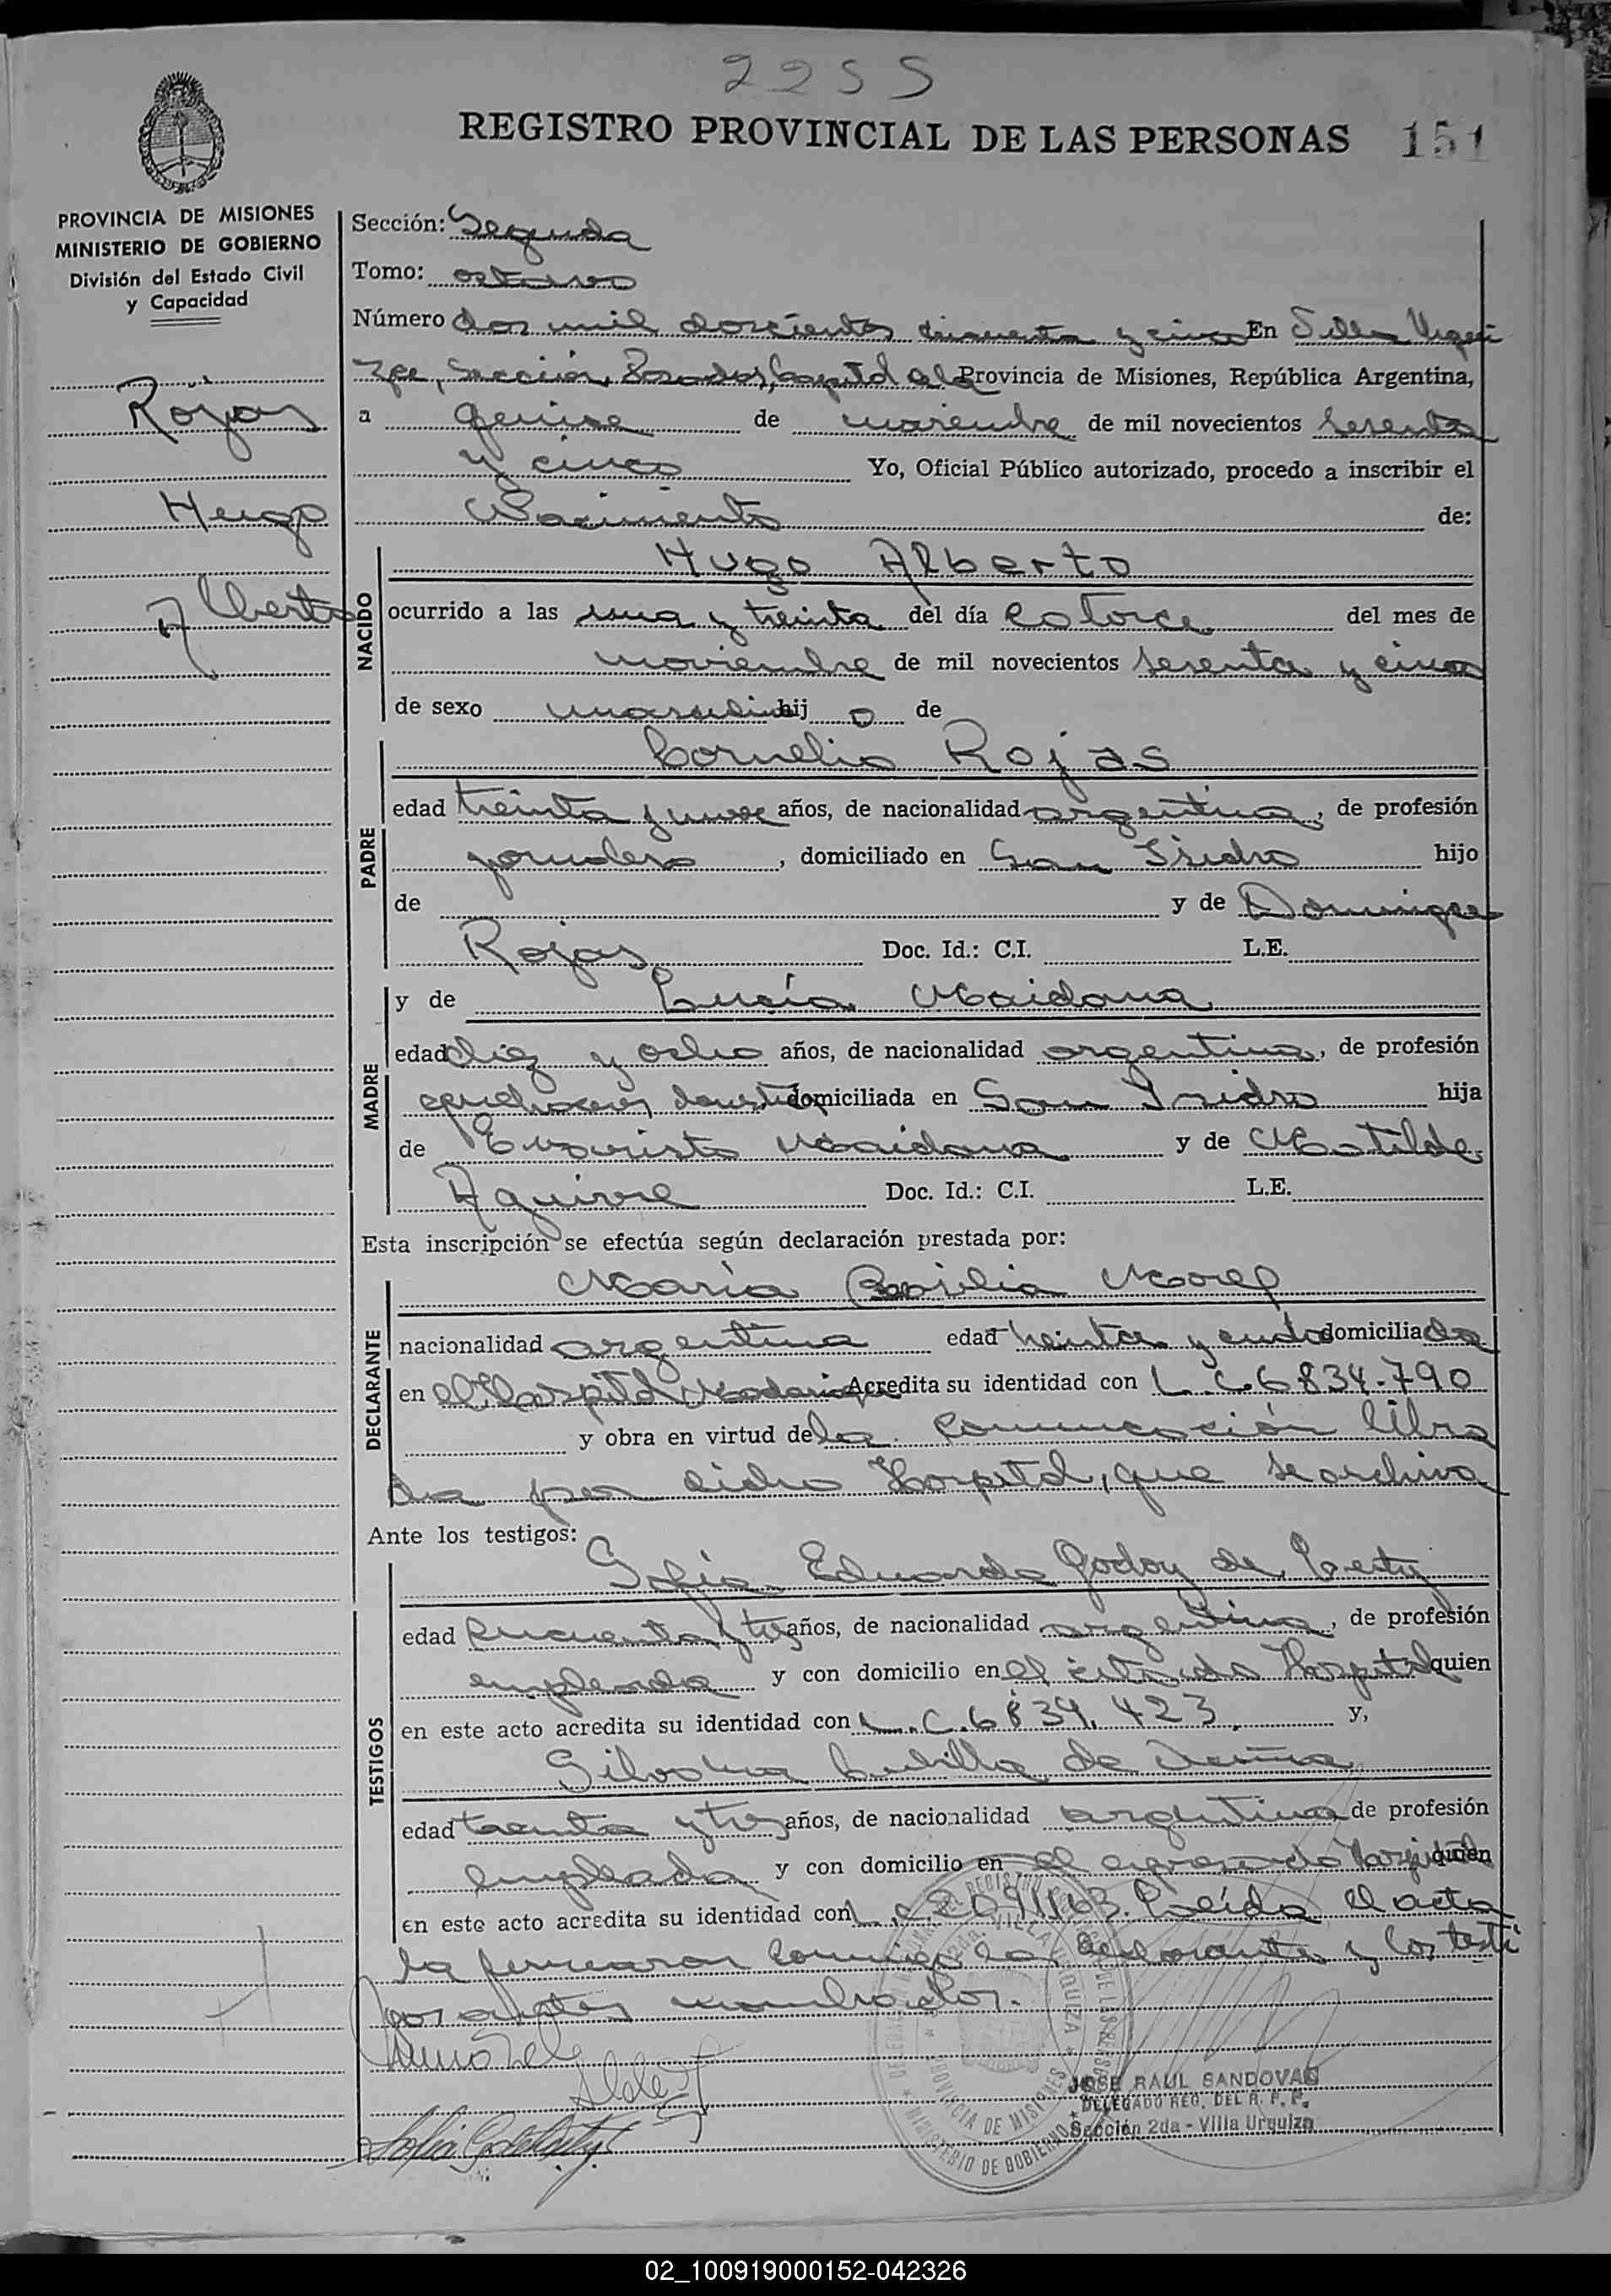 2255
REGISTRO PROVINCIAL DE LAS PERSONAS 151
PROVINCIA DE MISIONES
MINISTERIO DE GOBIERNO
División del Estado Civil
y Capacidad
Rojas
Hugo
Alberto
Sección: Segunda
Tomo: octavo
Número dos mil doscientos cincuenta y cinco En Villa Urqui
za, Sección, Posadas, Capital de la Provincia de Misiones, República Argentina,
a quince de noviembre de mil novecientos sesenta
y cinco Yo, Oficial Público autorizado, procedo a inscribir el
Nacimiento de:
NACIDO
Hugo Alberto
ocurrido a las una y treinta del día catorce del mes de
noviembre de mil novecientos sesenta y cinco
de sexo masculino hij o de
PADRE
Cornelio Rojas
edad treinta y nueve años, de nacionalidad argentina, de profesión
jornalero, domiciliado en San Isidro hijo
de y de Dominga
Rojas Doc. Id.: C.I. L.E.
MADRE
y de Lucía Maidana
edad diez y ocho años, de nacionalidad argentina, de profesión
quehaceres domésticos domiciliada en San Isidro hija
de Evaristo Maidana y de Matilde
Aguirre Doc. Id.: C.I. L.E.
Esta inscripción se efectúa según declaración prestada por:
DECLARANTE
María Basilia Morel
nacionalidad argentina edad treinta y domiciliada
en el Hospital Madariaga Acredita su identidad con L.C. 6834.790
y obra en virtud de la comunicación libra
da por dicho Hospital, que se archiva
Ante los testigos:
TESTIGOS
Sofía Eduarda Godoy de
edad cincuenta y tres años, de nacionalidad argentina, de profesión
empleada y con domicilio en el citado Hospital quien
en este acto acredita su identidad con L.C. 6834.423. y,
Silvestra de
edad treinta y tres años, de nacionalidad argentina de profesión
empleada y con domicilio en el expresado Hospital quien
en este acto acredita su identidad con L.C. Leída el acta
la firmaron conmigo la declarante y los testi
gos antes nombrados.
JOSE RAUL SANDOVAL
DELEGADO REG. DEL R. P. P.
Sección 2da - Villa Urquiza
PROVINCIA DE MISIONES
MINISTERIO DE GOBIERNO
02_100919000152-042326